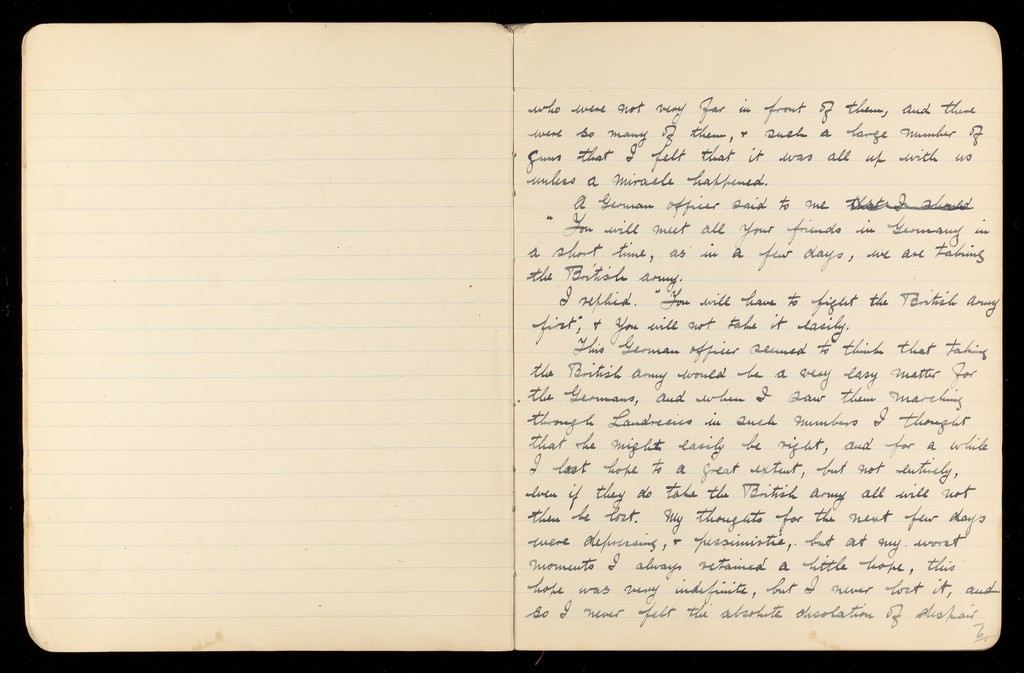 who were not very far in front of them, and there
were so many of them, & such a large number of
guns that I felt that it was all up with us
unless a miracle happened.
A German officer said to me that I should
"You will meet all your friends in Germany in
a short time, as in a few days, we are taking
the British army.
I replied. "You will have to fight the British army
first", & you will not take it easily.
This German officer seemed to think that taking
the British army would be a very easy matter for
the Germans, and when I saw them marching
through Landrecies in such numbers I thought
that he might easily be right, and for a while
I lost hope to a great extent, but not entirely,
even if they do take the British army all will not
then be lost. My thoughts for the next few days
were depressing, & pessimistic, but at my worst
moments I always retained a little hope, this
hope was very indefinite, but I never lost it, and
so I never felt the absolute desolation of despair
6.